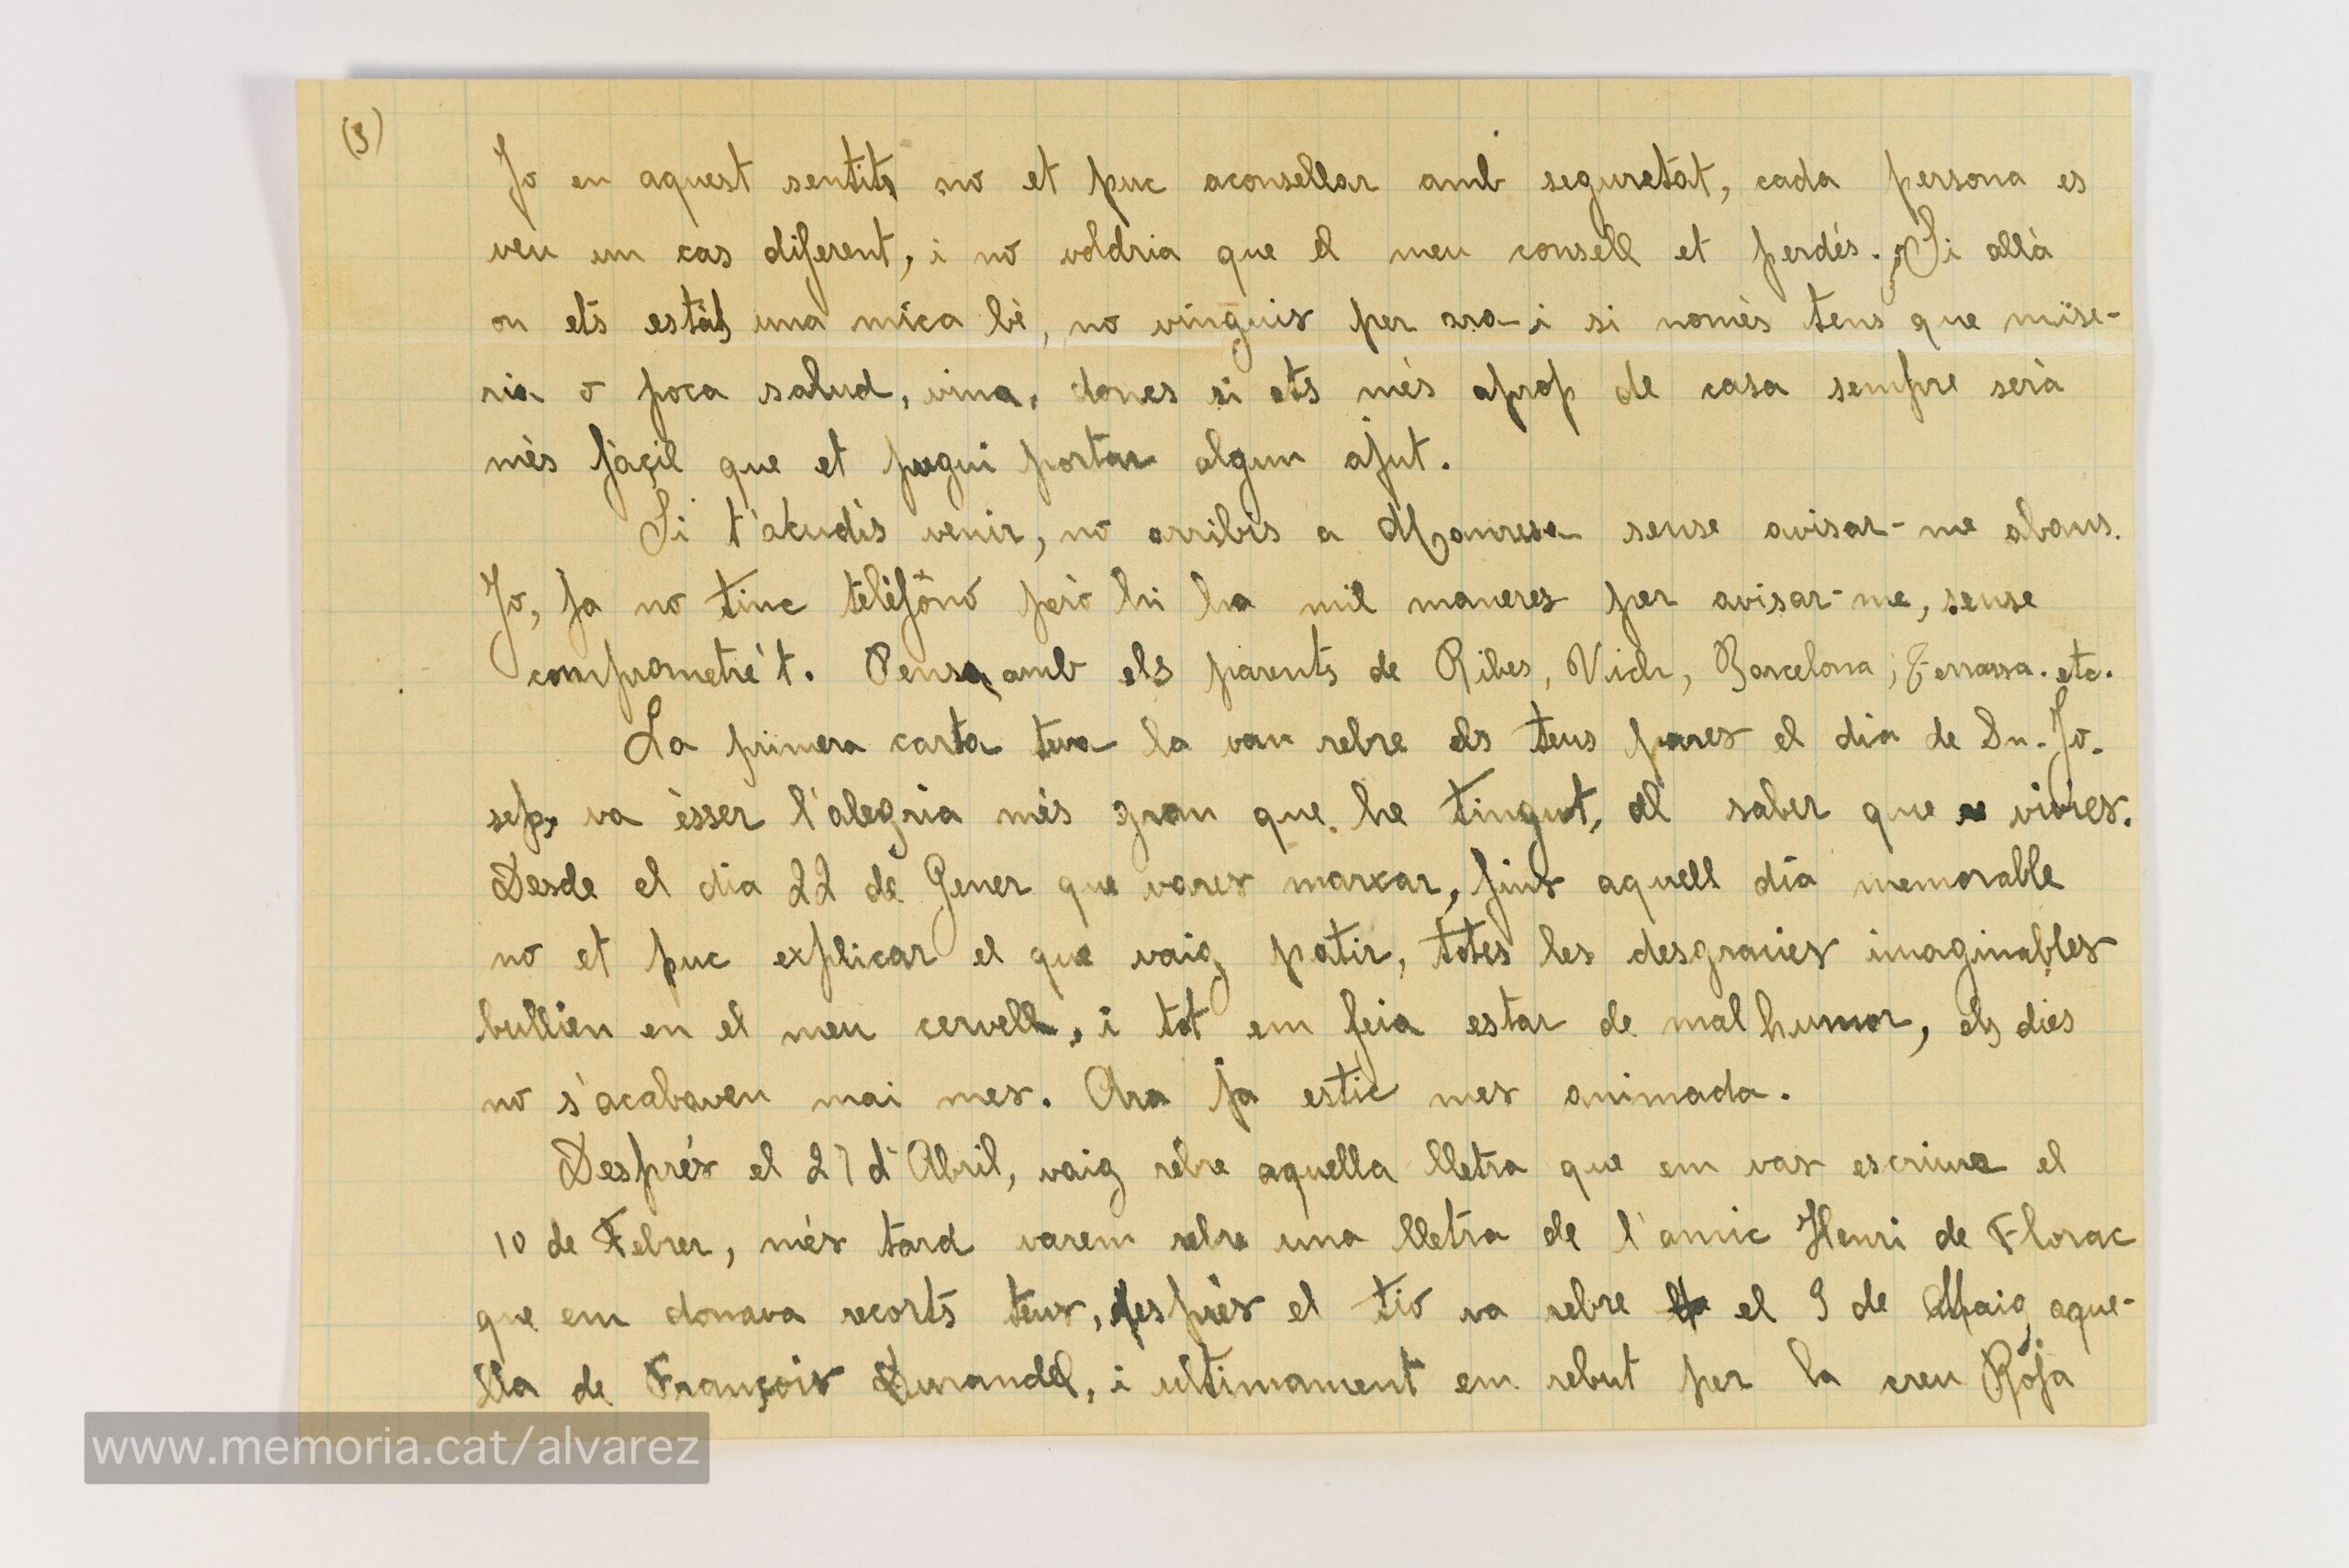 (3)
Jo en aquest sentits no et puc aconsellar amb seguretat, cada persona es
veu un cas diferent, i no voldria que el meu consell et perdés. Si allà
on ets estàs una mica bè, no vinguis per ara i si només tens que mise-
ria o poca salud, vina, dones si ets més aprop de casa sempre serà
mès fàcil que et pugui portar algun ajut.
Si t'akudís venir, no arribis a Manresa sense avisar-me abans.
Jo, ja no tinc telèfono però hi ha mil maneres per avisar-me, sense
comprometre't. Pensa amb els parents de Ribes, Vich, Barcelona, Terrassa. etc.
La primera carta teva la van rebre els teus pares el dia de Sn. Jo.
sep, va èsser l'alegria més gran que he tingut, al saber que vivies.
Desde el dia 22 de Gener que vares marxar, fins aquell dia memorable
no et puc explicar el que vaig patir, totes les desgracies imaginables
bullien en el meu cervell, i tot em feia estar de mal humor, els dies
no s'acabaven mai mes. Ara ja estic mes animada.
Després el 27 d'Abril, vaig rebre aquella lletra que em vas escriure el
10 de Febrer, més tard varem rebre una lletra de l'amic Henri de Florac
que em donava recorts teus, després el tio va rebre el 9 de Maig aque-
lla de François Durandel, i ultimament em rebut per la creu Roja
www.memoria.cat/alvarez